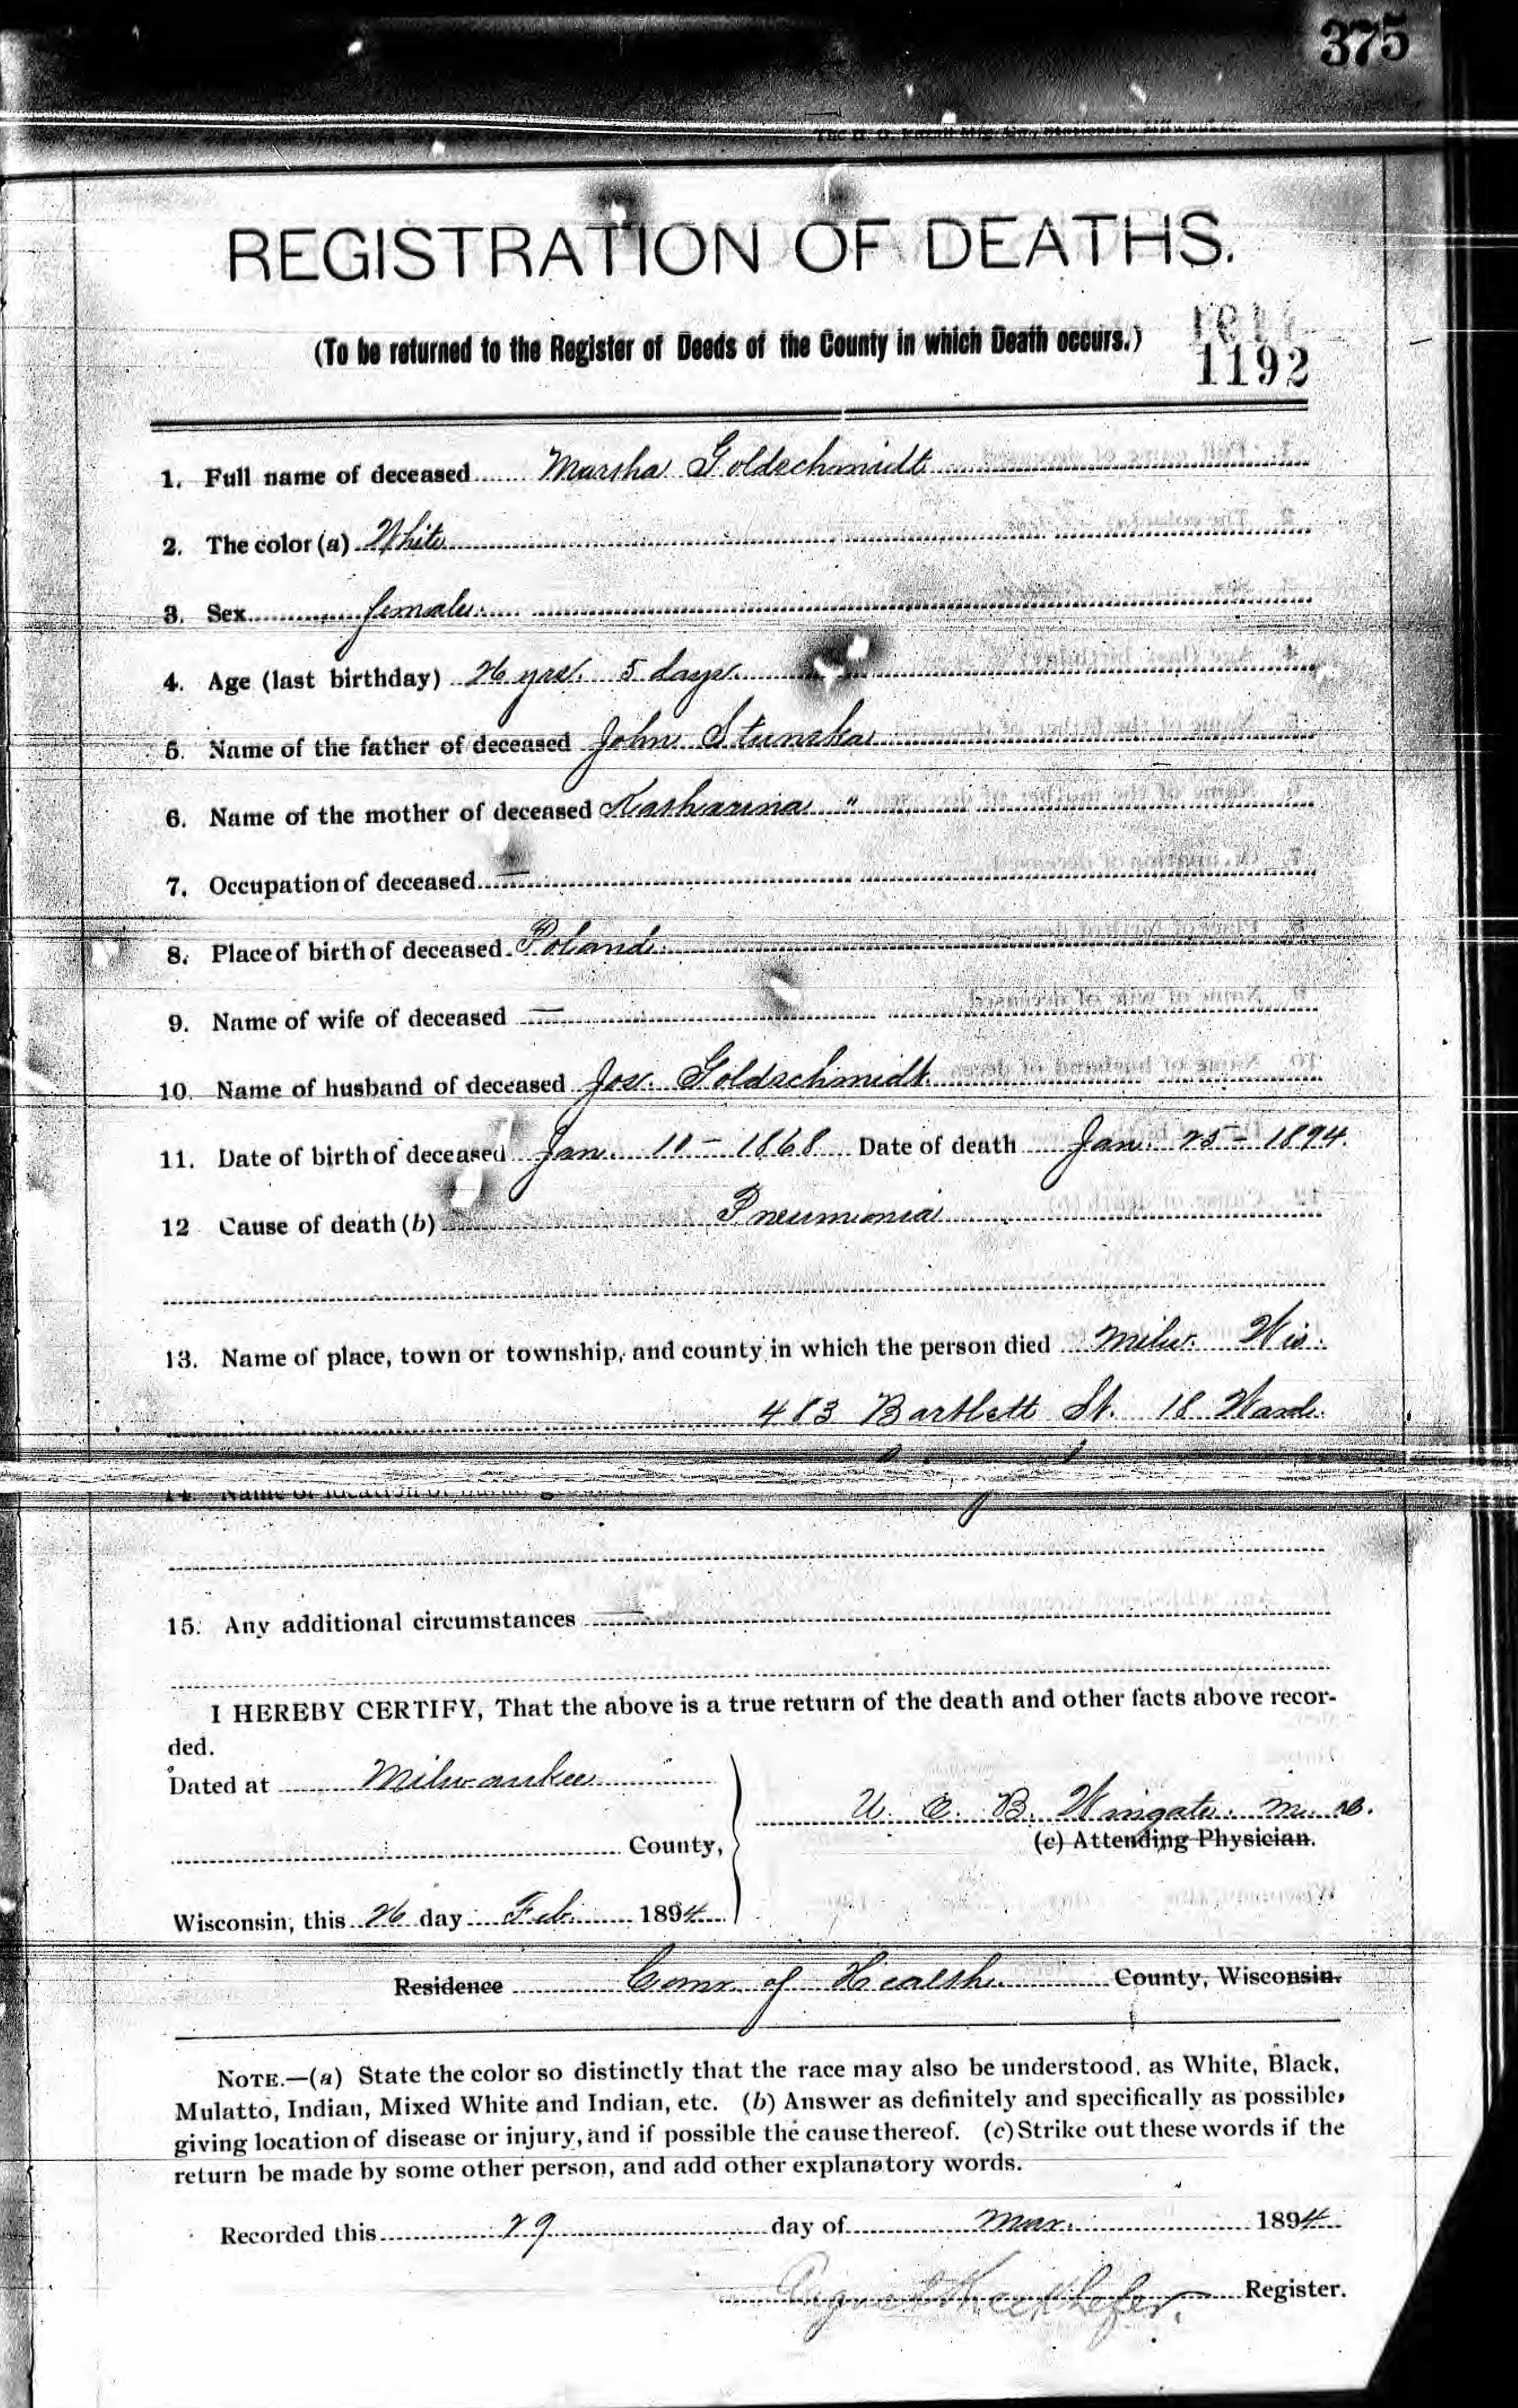 375
REGISTRATION OF DEATHS.
(To be returned to the Register of Deeds of the County in which Death occurs.)
1192
1. Full name of deceased Marsha Goldschmidt
2. The color (a) White
3. Sex female
4. Age (last birthday) 26 yrs. 5 days.
5. Name of the father of deceased John Stunska
6. Name of the mother of deceased Katharina "
7. Occupation of deceased —
8. Place of birth of deceased Poland
9. Name of wife of deceased —
10. Name of husband of deceased Jos. Goldschmidt
11. Date of birth of deceased Jan. 10 - 1868 Date of death Jan 25 - 1894.
12 Cause of death (b) Pneumonia
13. Name of place, town or township, and county in which the person died Milw. Wis.
483 Bartlett St. 18 Ward.
14. Name of location of
15. Any additional circumstances —
I HEREBY CERTIFY, That the above is a true return of the death and other facts above recor-
ded.
Dated at Milwaukee
U. O. B. Wingate. M. D.
(c) Attending Physician.
County,
Wisconsin, this 26 day Feb. 1894
Residence Comr. of Health County, Wisconsin.
NOTE.—(a) State the color so distinctly that the race may also be understood, as White, Black,
Mulatto, Indian, Mixed White and Indian, etc. (b) Answer as definitely and specifically as possible,
giving location of disease or injury, and if possible the cause thereof. (c) Strike out these words if the
return be made by some other person, and add other explanatory words.
Recorded this 29 day of Mar. 1894
Register.